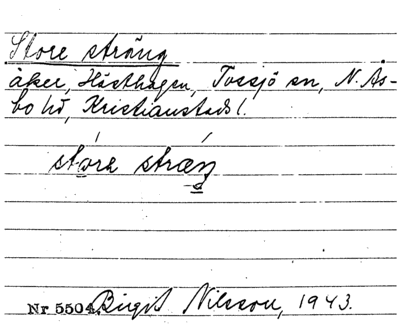 Store sträng
åker, Hästhagen, Tossjö sn, N. Ås-
bo hd, Kristianstads l.
Nr 5504. Birgit Nilsson, 1943.